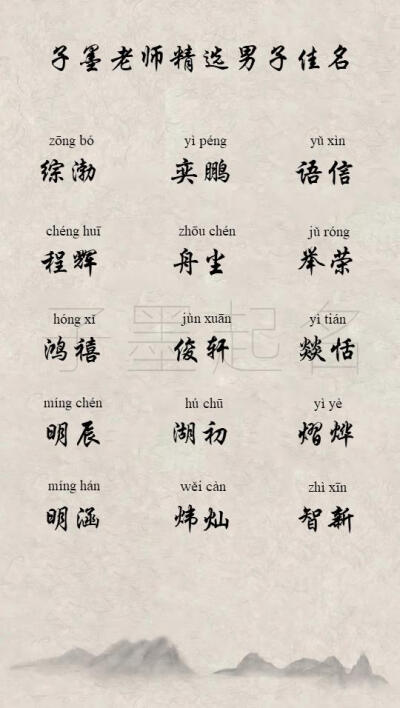 子墨老师精选男子佳名
zōng bó yì péng yǔ xìn
综渤 奕鹏 语信
chéng huī zhōu chén jǔ róng
程辉 舟尘 举荣
子墨起名
hóng xǐ jùn xuān yì tián
鸿禧 俊轩 燚恬
míng chén hú chū yì yè
明辰 湖初 熠烨
míng hán wěi càn zhì xīn
明涵 炜灿 智新